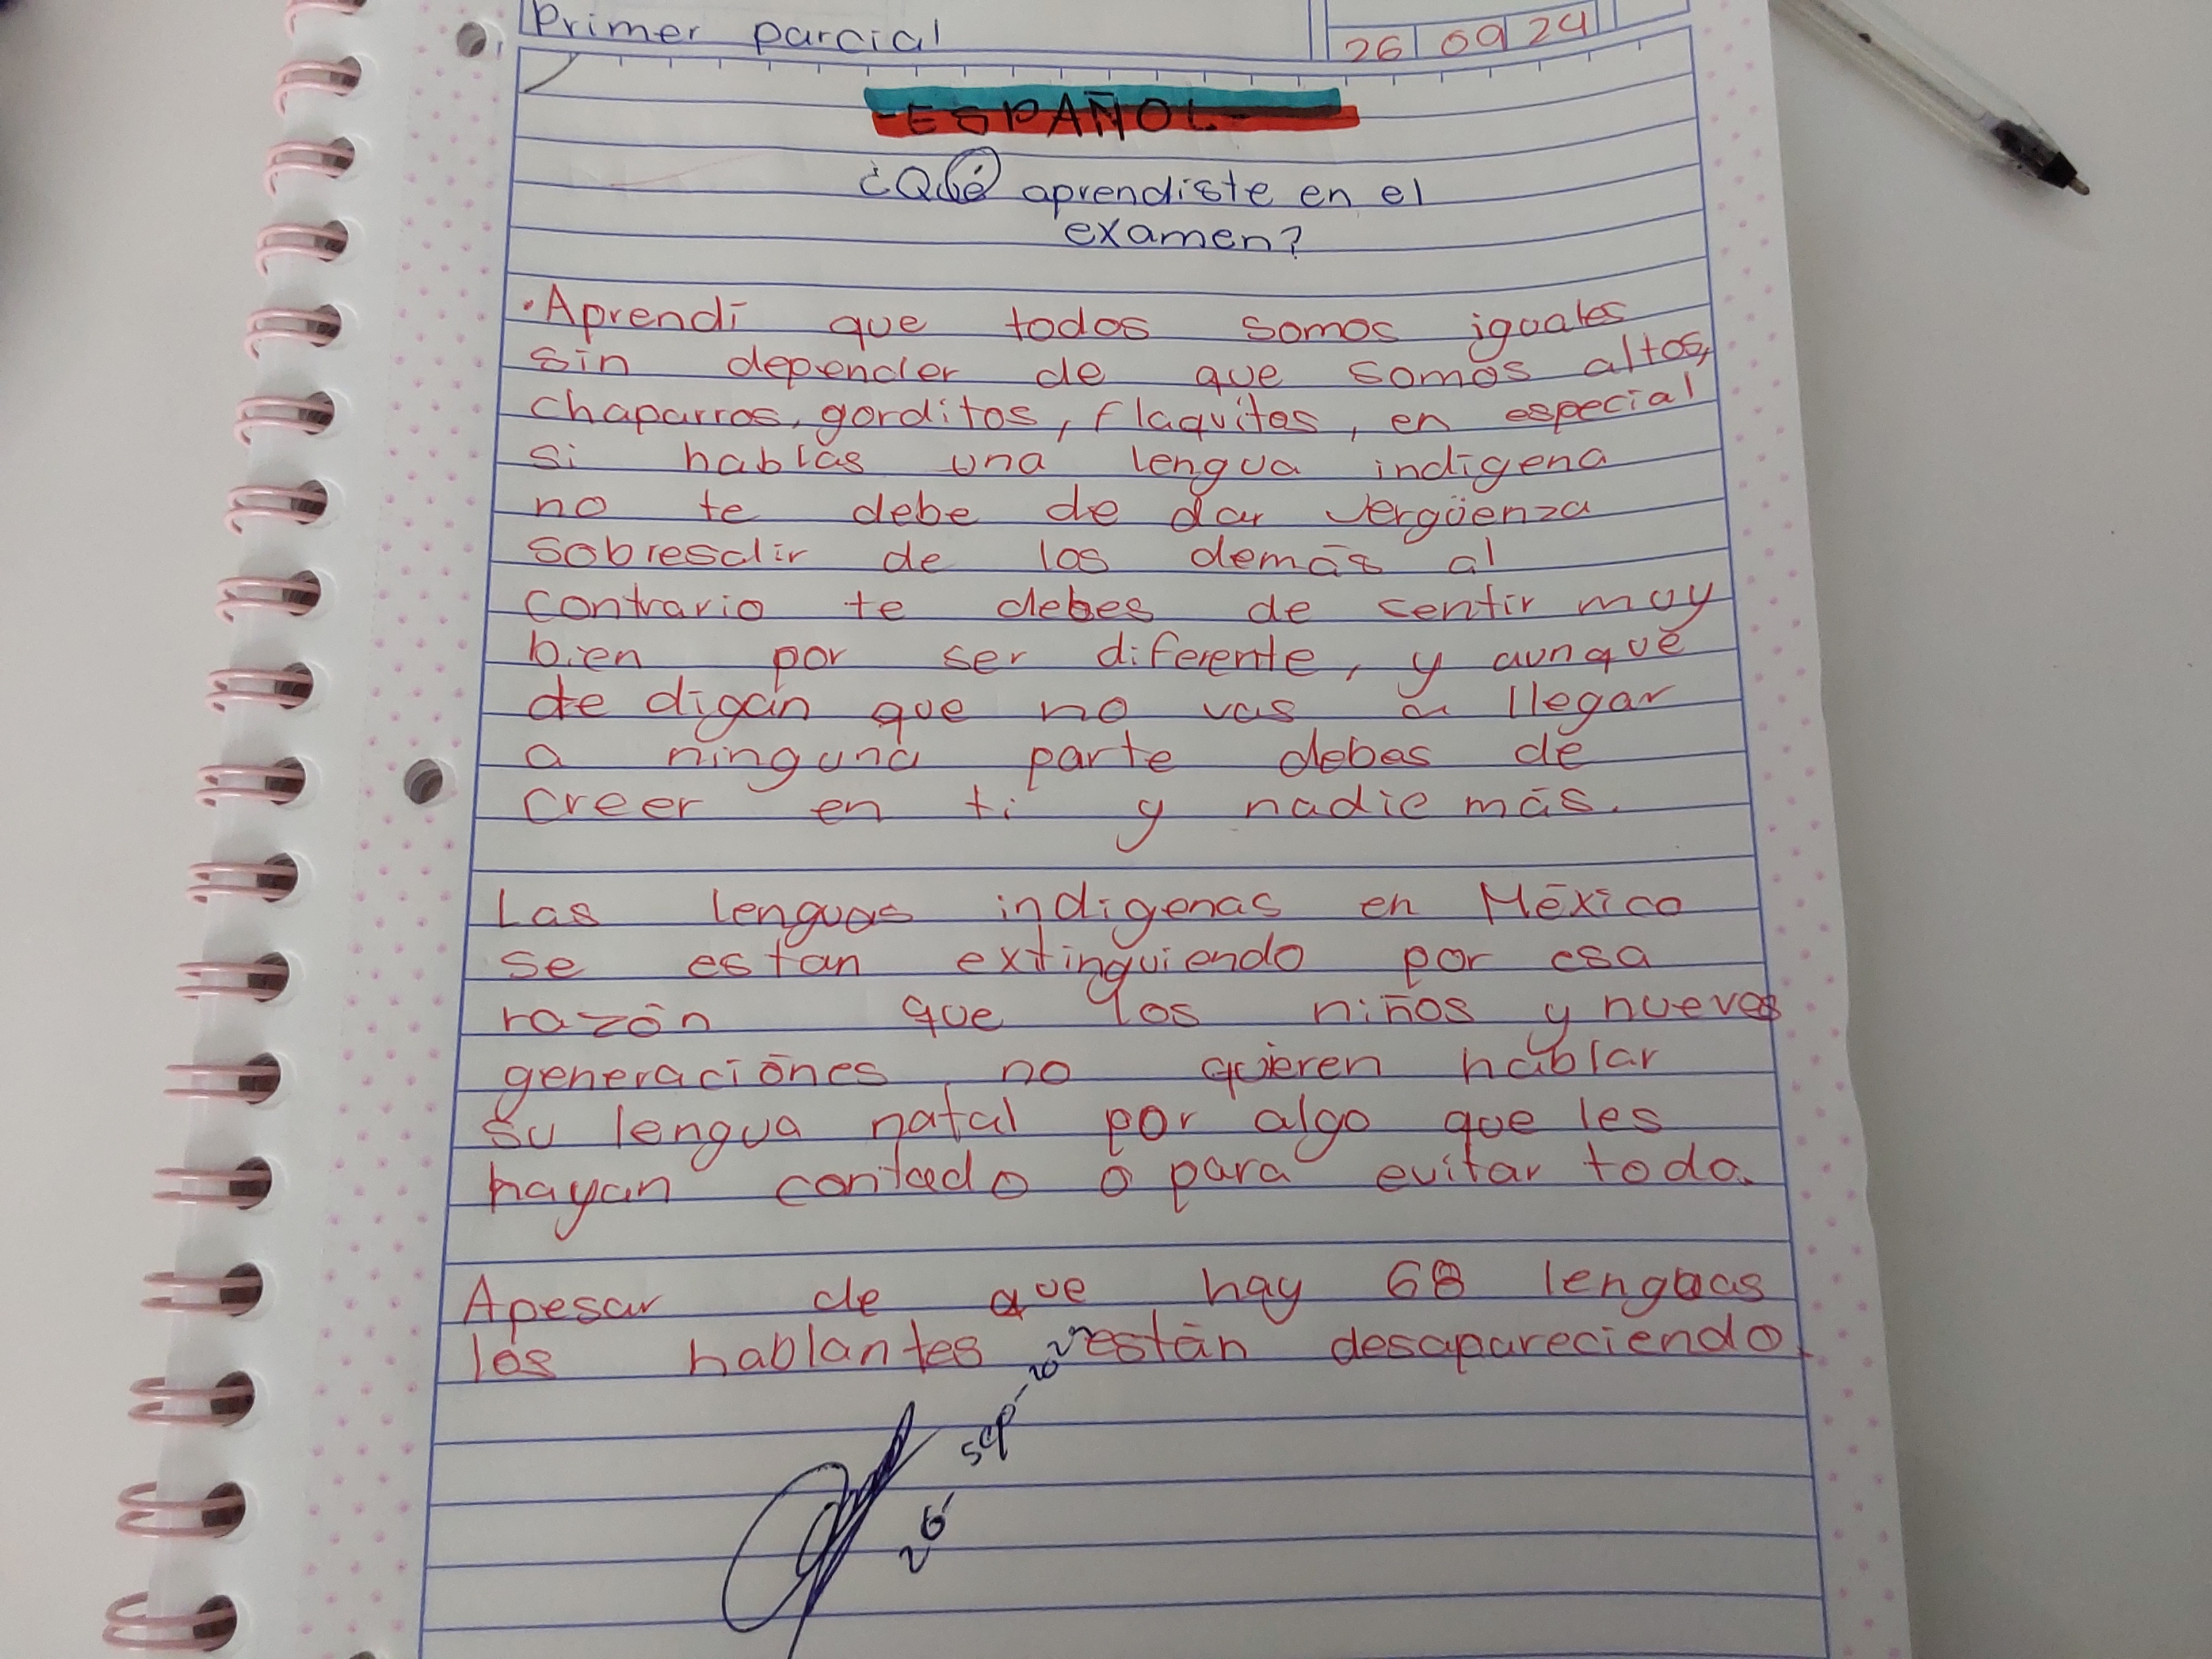 Primer parcial
26 09 24
-ESPAÑOL-
¿Qué aprendiste en el
examen?
• Aprendí que todos somos iguales
sin depender de que somos altos,
chaparros, gorditos, flaquitos, en especial
si hablas una lengua indígena
no te debe de dar vergüenza
sobresalir de los demás al
contrario te debes de sentir muy
bien por ser diferente, y aunque
te digan que no vas a llegar
a ninguna parte debes de
creer en ti y nadie más.
Las lenguas indígenas en México
se estan extinguiendo por esa
razón que los niños y nuevas
generaciónes no quieren hablar
su lengua natal por algo que les
hayan contado o para evitar todo.
Apesar de que hay 68 lenguas
los hablantes están desapareciendo.
26 sep